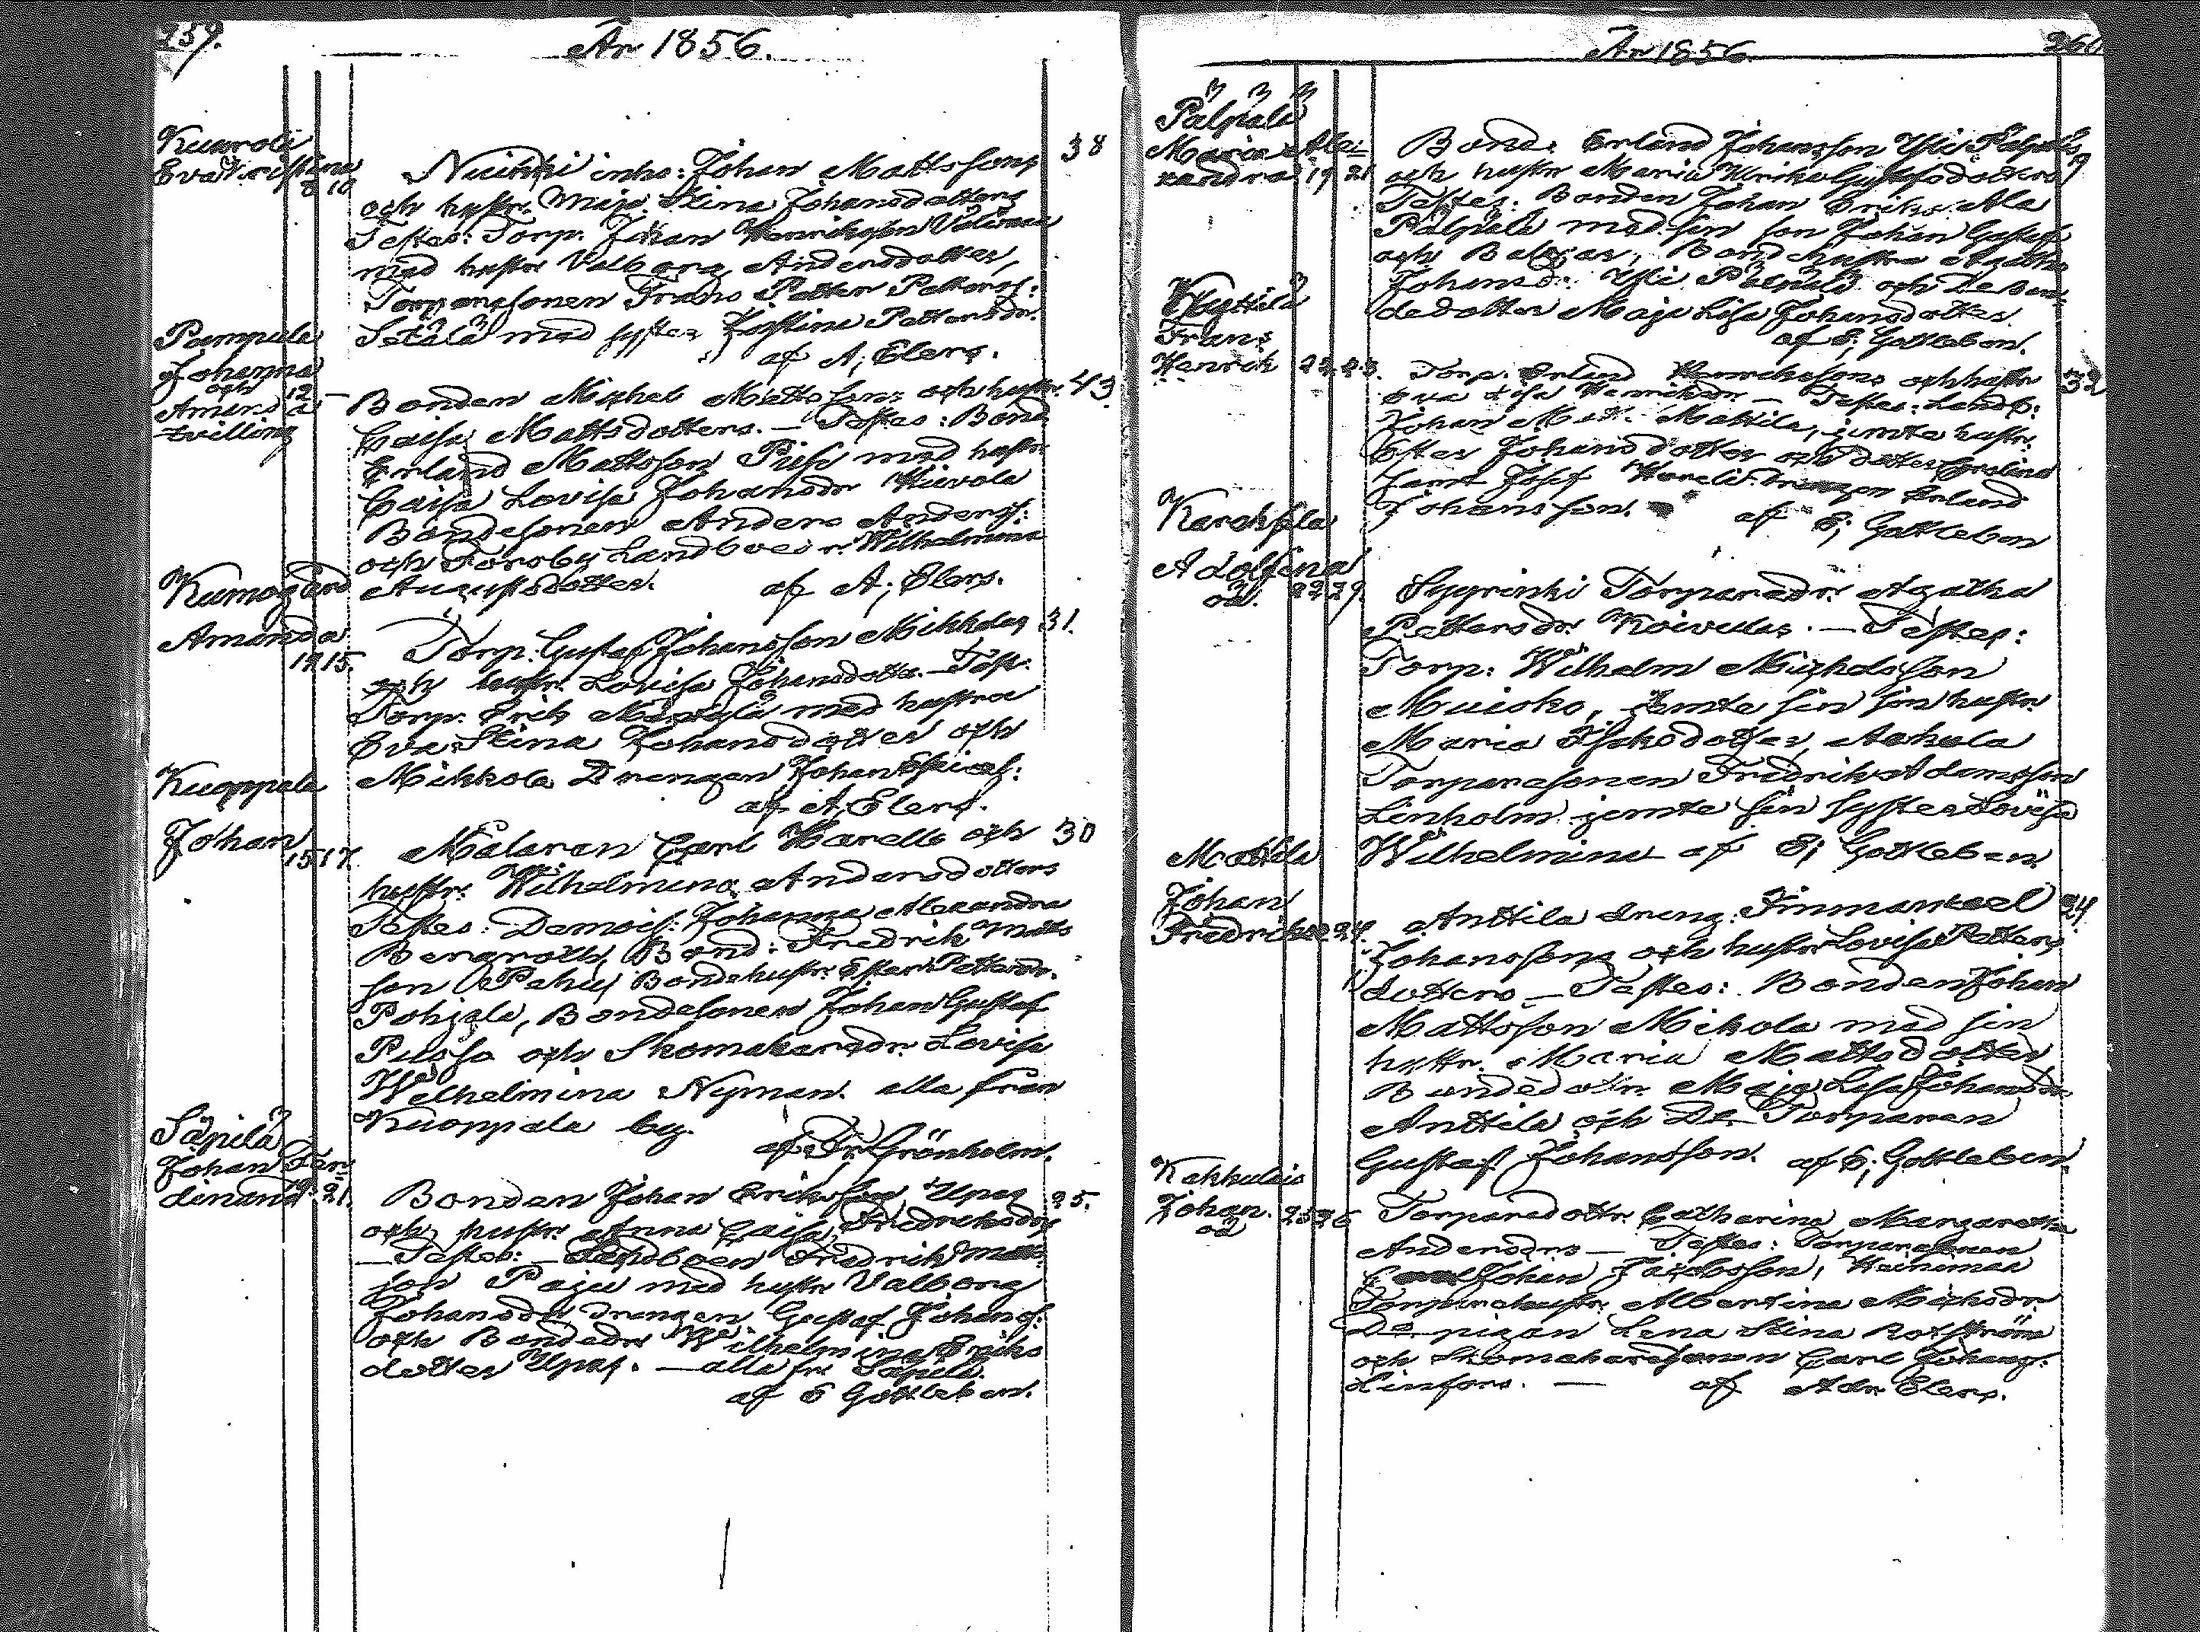 259.
År 1856.
Eva Kristina
8 10
Nuikki inhs: Johan Mattssons
38
och hustr. Maja Stina Johansdotters
Testes: Torp. Johan Henriksson
med hustr Valborg Andersdotter,
Torparesonen Frans Petter Petterss:
Sätälä med syster Justina Pettersdr.
af A; Elers.
Pampula
Johanna
och 12 –
Amanda
tvilling
Bonden Michel Mattssons och hustr.
43
Caisa Mattsdotters. – Testes: Bond
Erland Mattsson Piile med hustr
Caisa Lovisa Johansdr
Bondesonen Anders Anderss:
och Torsby Landboedr. Wilhelmina
Augustsdotter. af A; Elers.
Amanda
15.
Torp: Gustaf Johansson Mikkolas
31.
och hustr. Lovisa Johansdotts. – Test.
Torp. Erik med hustru
Eva Stina Johansdotter och
Mikkola Drengen Johan
af A, Elers.
Kuoppala
Johan
15 17.
Målaren Carl Harells och
30
hustr. Wilhelmina Andersdotters
Testes: Demois: Johanna Alexandra
Bergroth, Bond: Fredrik Matts
son Pahu, Bondehustr: Ester Pettersdr.
Pohjala, Bondesonen Johan Gustaf
Pilssa och Skomakaredr. Lovisa
Wilhelmina Nyman. alla från
Kuoppala by.
af Fr. Grönholm.
Säpilä
Johan Fer
dinand 21.
Bonden Johan Eriksson Upas
25.
och hustr. Anna Caisa Fredriksdrs
– Testes: – Landboen Fredrik
son Paju med hustr Valborg
Johansdr drengen Gustaf Johanss:
och Bondedr Wilhelmina Eriks
dotter Upas. – alla fr. Säpilä.
af E Gottleben.
260
År 1856.
Pälpälä
Maria Alex
xandra 19 21
Bond. Erland Johansson Yli Pälpäläs
och hustr Maria Ulrika Gustafsdotters
Testes: Bonden Johan Eriks. Ala
Pälpälä med sin son Johan Gustaf
och Bondehustru Agatha
Johansd: Yli Pälpälä och
dedotter Maja Lisa Johansdotter.
af E; Gottleben.
Kyttilä
Frans
Henrik 23.
Torp. Erland Henrikssons och hustr
32
Eva Lisa Henriksdr – Testes: Landb:
Johan Matt. Mattila, jemte hustr.
Ester Johansdotter och dotter
samt Josef drengen Erland
Johansson. af E; Gottleben
Karhula
Adolfina
oä. 22 29.
Sygrinki Torparedr. Agatha
Pettersdr. Koivulas. – Testes:
Torp: Wilhelm Michelsson
Muisko, jemte sin hustr.
Maria Isaksdotter, Anhola
Torparesonen Fredrik Adamsson
Linholm jemte sin syster Lovisa
Wilhelmina af E; Gottleben
Mattila
Johan
Fredrik 22 24.
Anttila dreng: Immanuel
24.
Johanssons och hustr Lovisa Petters
dotters – Testes: Bonden Johan
Mattsson Mikola med sin
hustr. Maria Mattsdotter
Bondedotr. Maja Lisa Johansdr
Anttila och Do. Torparen
Gustaf Johansson. af E; Gottleben.
Johan. 25 26
oä
Torparedottr. Catharina Margaretha
Andersdrs – Testes: Torparesonen
Johan Jacobsson, Heinimaa
Torparehustr. Albertina
Do pigan Lena Stina Rosström
och Skomakaresonen Carl Johans.
Linfors. – af Adr. Elers.